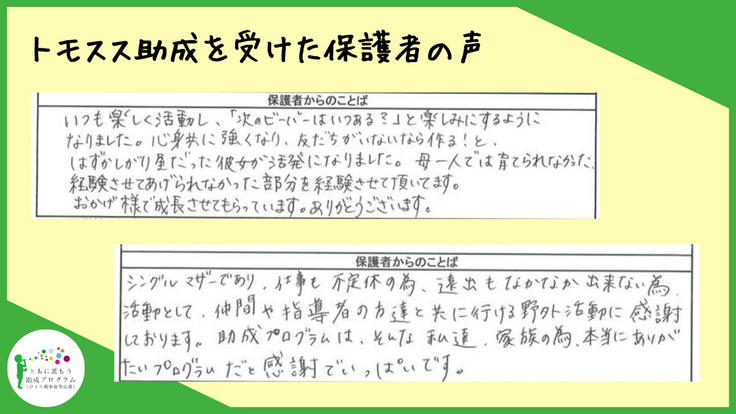 トモスス助成を受けた保護者の声
保護者からのことば
いつも楽しく活動し、「次のビーバーはいつある?」と楽しみにするように
なりました。心身共に強くなり、友だちがいないなら作る!と、
はずかしがり屋だった彼女が活発になりました。母一人では育てられなかった、
経験させてあげられなかった部分を経験させて頂いてます。
おかげ様で成長させてもらっています。ありがとうございます。
保護者からのことば
シングルマザーであり、仕事も不定休の為、遠出もなかなか出来ない為、
活動として、仲間や指導者の方達と共に行ける野外活動に感謝
しております。助成プログラムは、そんな私達、家族の為、本当にありが
たいプログラムだと感謝でいっぱいです。
ともに進もう
助成プログラム
(ひとり親家庭等応援)